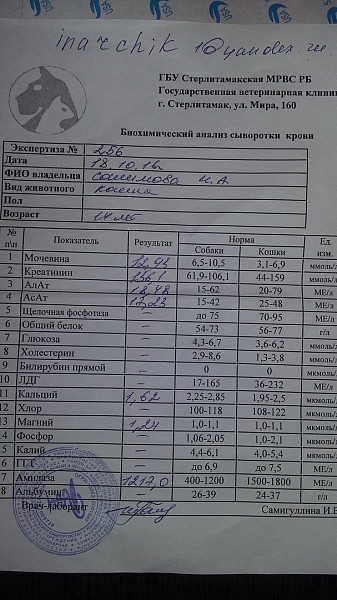 inarchik 10yandex.ru.
ГБУ Стерлитамакская МРВС РБ
Государственная ветеринарная клини
г. Стерлитамак, ул. Мира, 160
Биохимический анализ сыворотки крови
Экспертиза № 256
Дата 18.10.16г
ФИО владельца Салимова И. А
Вид животного кошка
Пол
Возраст 14 лет
№ п\п Показатель Результат Норма Ед. изм.
Собаки Кошки
1 Мочевина 12,93 6,5-10,5 3,1-6,9 ммоль/
2 Креатинин 61,9-106,1 44-159 ммоль/
3 АлАт 15-62 20-79 МЕ/л
4 АсАт 15-42 25-48 МЕ/л
5 Щелочная фосфотаза — до 75 70-95 МЕ/л
6 Общий белок — 54-73 56-77 г/л
7 Глюкоза — 4,3-6,7 3,6-6,2 ммоль/
8 Холестерин — 2,9-8,6 1,3-3,8 ммоль/
9 Билирубин прямой — 0 0 мкмоль/
10 ЛДГ — 17-165 36-232 МЕ/л
11 Кальций 1,62 2,25-2,85 1,95-2,5 ммоль/
12 Хлор — 100-118 108-122 ммоль/
13 Магний 1,24 1,0-1,1 1,0-1,1 ммоль/
14 Фосфор — 1,06-2,05 1,0-2,1 ммоль/
5 Калий — 4,4-6,1 4,0-5,4 ммоль/
6 ГГТ — до 6,9 до 7,5 МЕ/л
7 Амилаза 1217,0 400-1200 1500-1800 МЕ/л
8 Альбумин — 26-39 24-37 г/л
Врач-лаборант Самигуллина И.